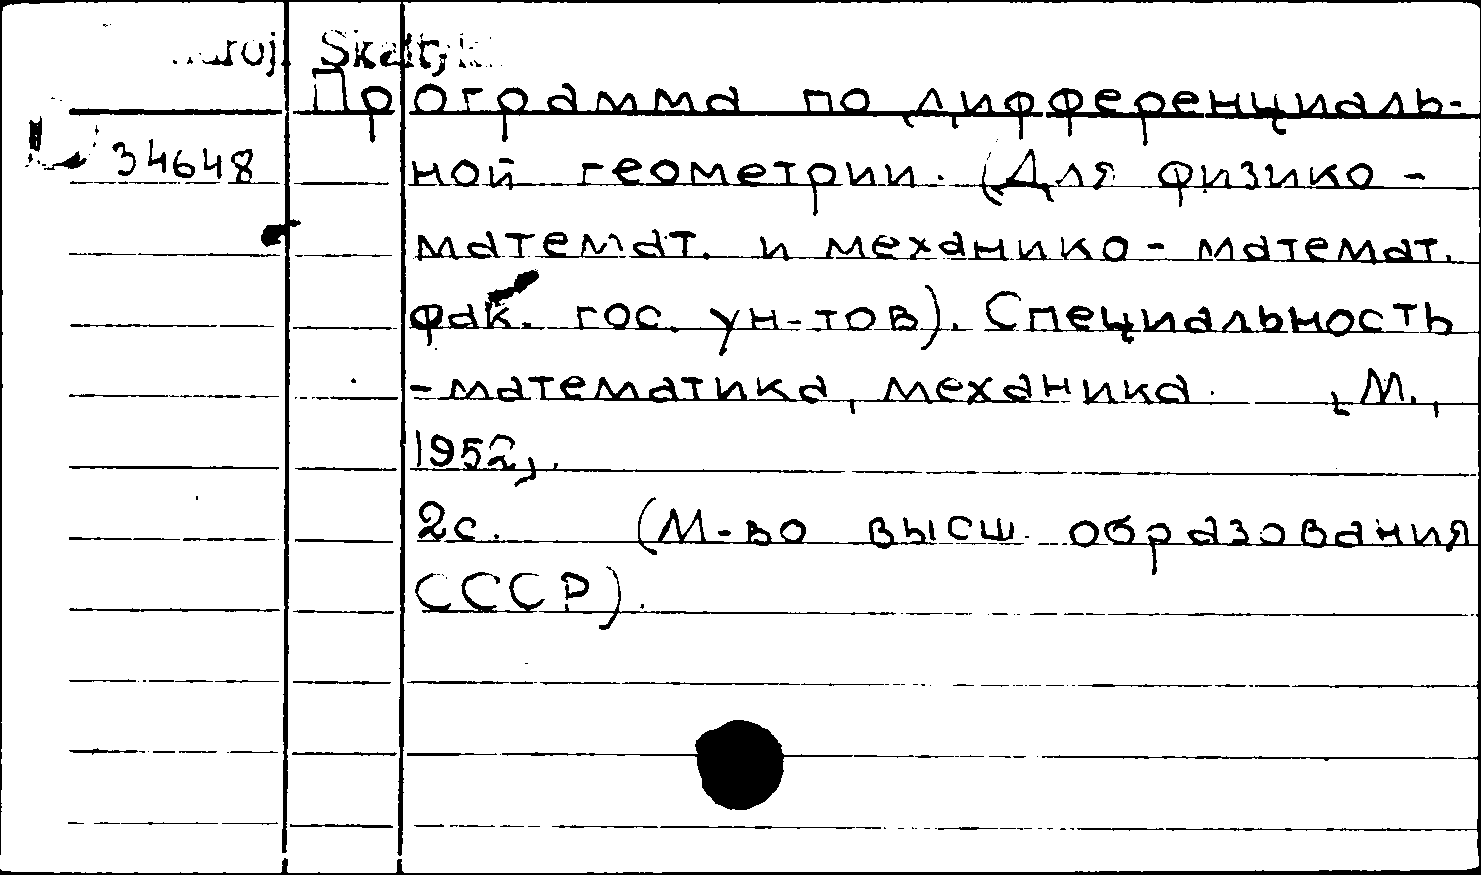 Программа по дифференциаль-
34648 ной геометрии. (Для физико-
математ. и механико-математ.
фак. гос. ун-тов). Специальность
-математика, механика. , М.,
1952,.
2с. (М-во высш. образования
СССР).